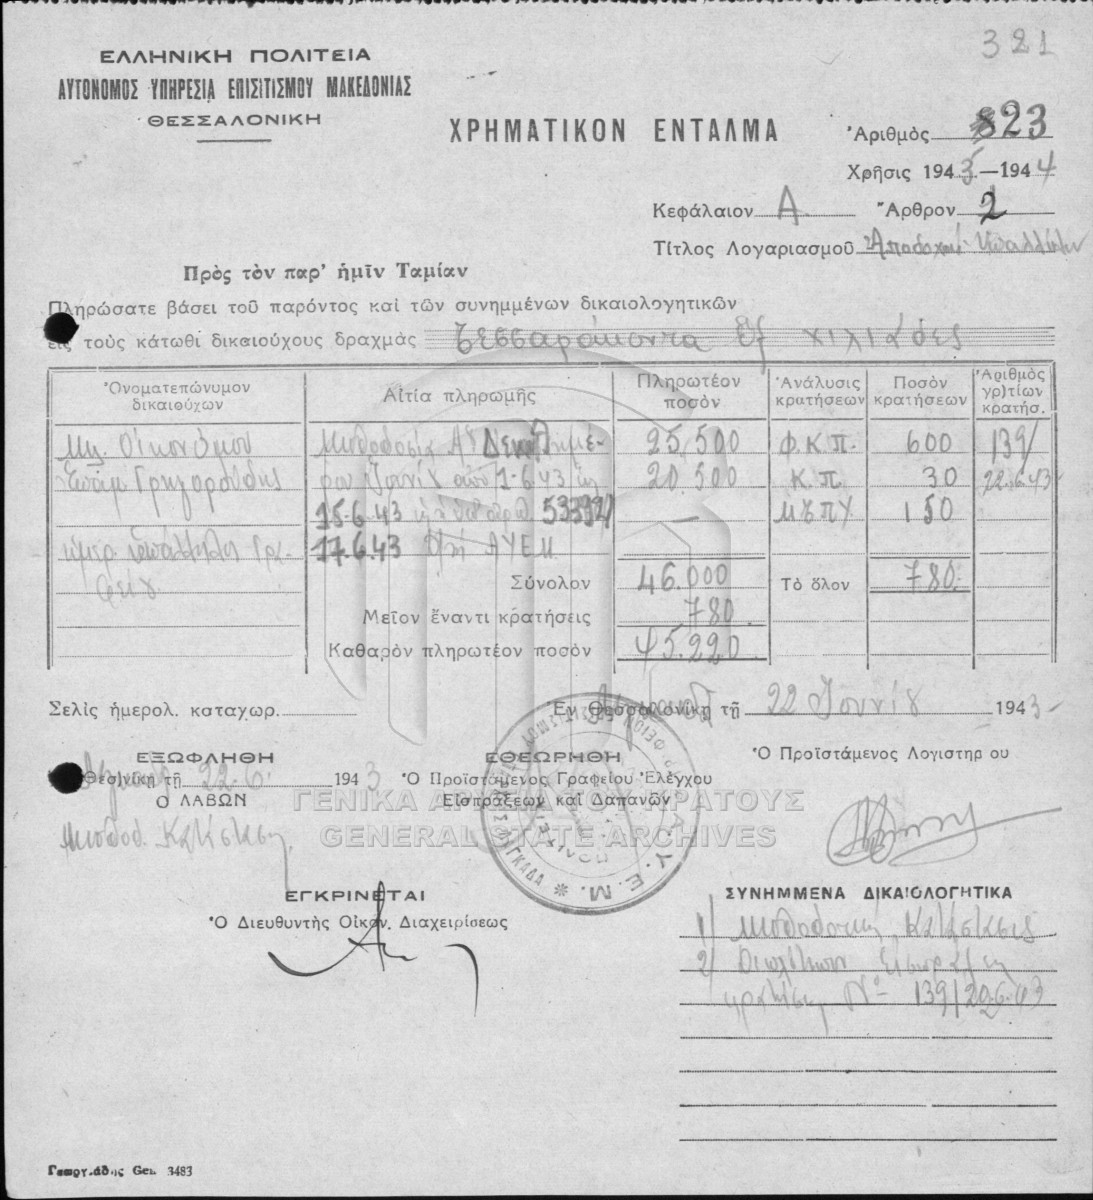 321
ΕΛΛΗΝΙΚΗ ΠΟΛΙΤΕΙΑ
ΑΥΤΟΝΟΜΟΣ ΥΠΗΡΕΣΙΑ ΕΠΙΣΙΤΙΣΜΟΥ ΜΑΚΕΔΟΝΙΑΣ
ΘΕΣΣΑΛΟΝΙΚΗ
ΧΡΗΜΑΤΙΚΟΝ ΕΝΤΑΛΜΑ
Ἀριθμὸς 823
Χρῆσις 1943—1944
Κεφάλαιον Α Ἄρθρον 2
Τίτλος Λογαριασμοῦ Ἀποδοχαὶ Ὑπαλλήλων
Πρὸς τὸν παρ' ἡμῖν Ταμίαν
Πληρώσατε βάσει τοῦ παρόντος καὶ τῶν συνημμένων δικαιολογητικῶν
εἰς τοὺς κάτωθι δικαιούχους δραχμὰς Τεσσαράκοντα ἓξ χιλιάδες
Ὀνοματεπώνυμον δικαιούχων Αἰτία πληρωμῆς Πληρωτέον ποσὸν Ἀνάλυσις κρατήσεων Ποσὸν κρατήσεων Ἀριθμὸς γρ)τίων κρατήσ.
Μιχ. Οἰκονόμου Μισθοδοσία Α Δεκαπενθημέ- 25.500 Φ.Κ.Π. 600 139/
Ἐπαμ. Γρηγοριάδης ρου Ἰουνίου ἀπὸ 1-6-43 ἕως 20.500 Κ.Π. 30 22.6.43
15-6.43 53332/ — Μ.Τ.Π.Υ. 150
17.6.43 ΑΥΕΜ
Σύνολον 46.000 Τὸ ὅλον 780
Μεῖον ἔναντι κρατήσεις 780
Καθαρὸν πληρωτέον ποσὸν 45.220
Σελὶς ἡμερολ. καταχωρ.
Ἐν Θεσσαλονίκῃ τῇ 22 Ἰουνίου 1943
ΕΞΩΦΛΗΘΗ
Θεσ)νίκη τῇ 22.6. 1943
Ο ΛΑΒΩΝ
Μισθοδ. Κατάστασις
ΕΘΕΩΡΗΘΗ
Ὁ Προϊστάμενος Γραφείου Ἐλέγχου
Εἰσπράξεων καὶ Δαπανῶν
Ὁ Προϊστάμενος Λογιστηρ ου
ΓΕΝΙΚΑ ΑΡΧΕΙΑ ΤΟΥ ΚΡΑΤΟΥΣ
GENERAL STATE ARCHIVES
Α.Υ.Ε.Μ.
ΕΓΚΡΙΝΕΤΑΙ
Ὁ Διευθυντὴς Οἰκον. Διαχειρίσεως
ΣΥΝΗΜΜΕΝΑ ΔΙΚΑΙΟΛΟΓΗΤΙΚΑ
1) Μισθοδοτικὴ Κατάστασις
2) Διπλότυπον Εἰσπράξεως
κρατήσεων Νο 139/22.6.43
Γεωργιάδης Θεσ. 3483